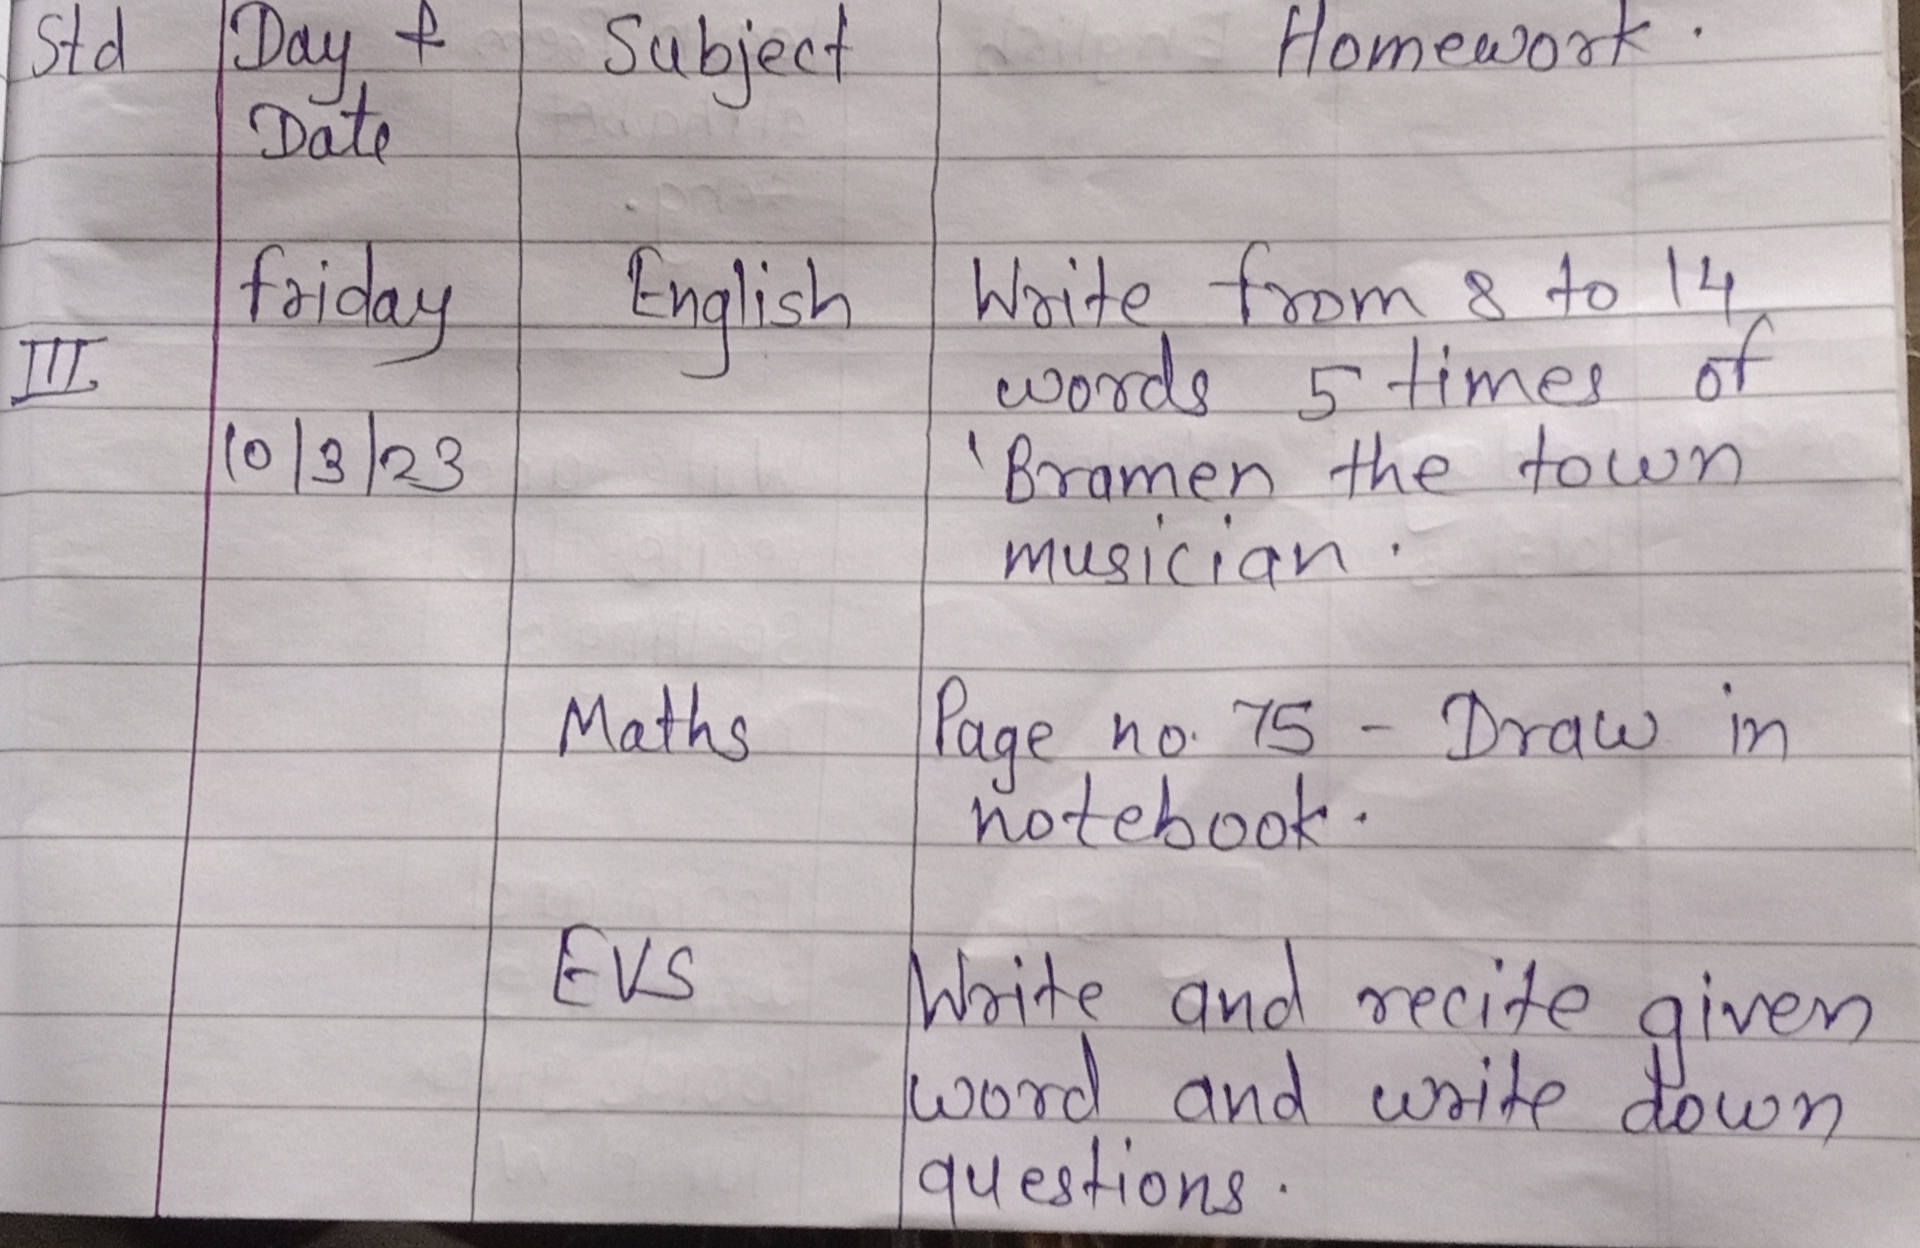 Std Day & Subject Homework.
Date
friday English Write from 8 to 14
III words 5 times of
10/3/23 'Bramen the town
musician.
Maths Page no. 75 - Draw in
notebook.
EVS Write and recite given
word and write down
questions.